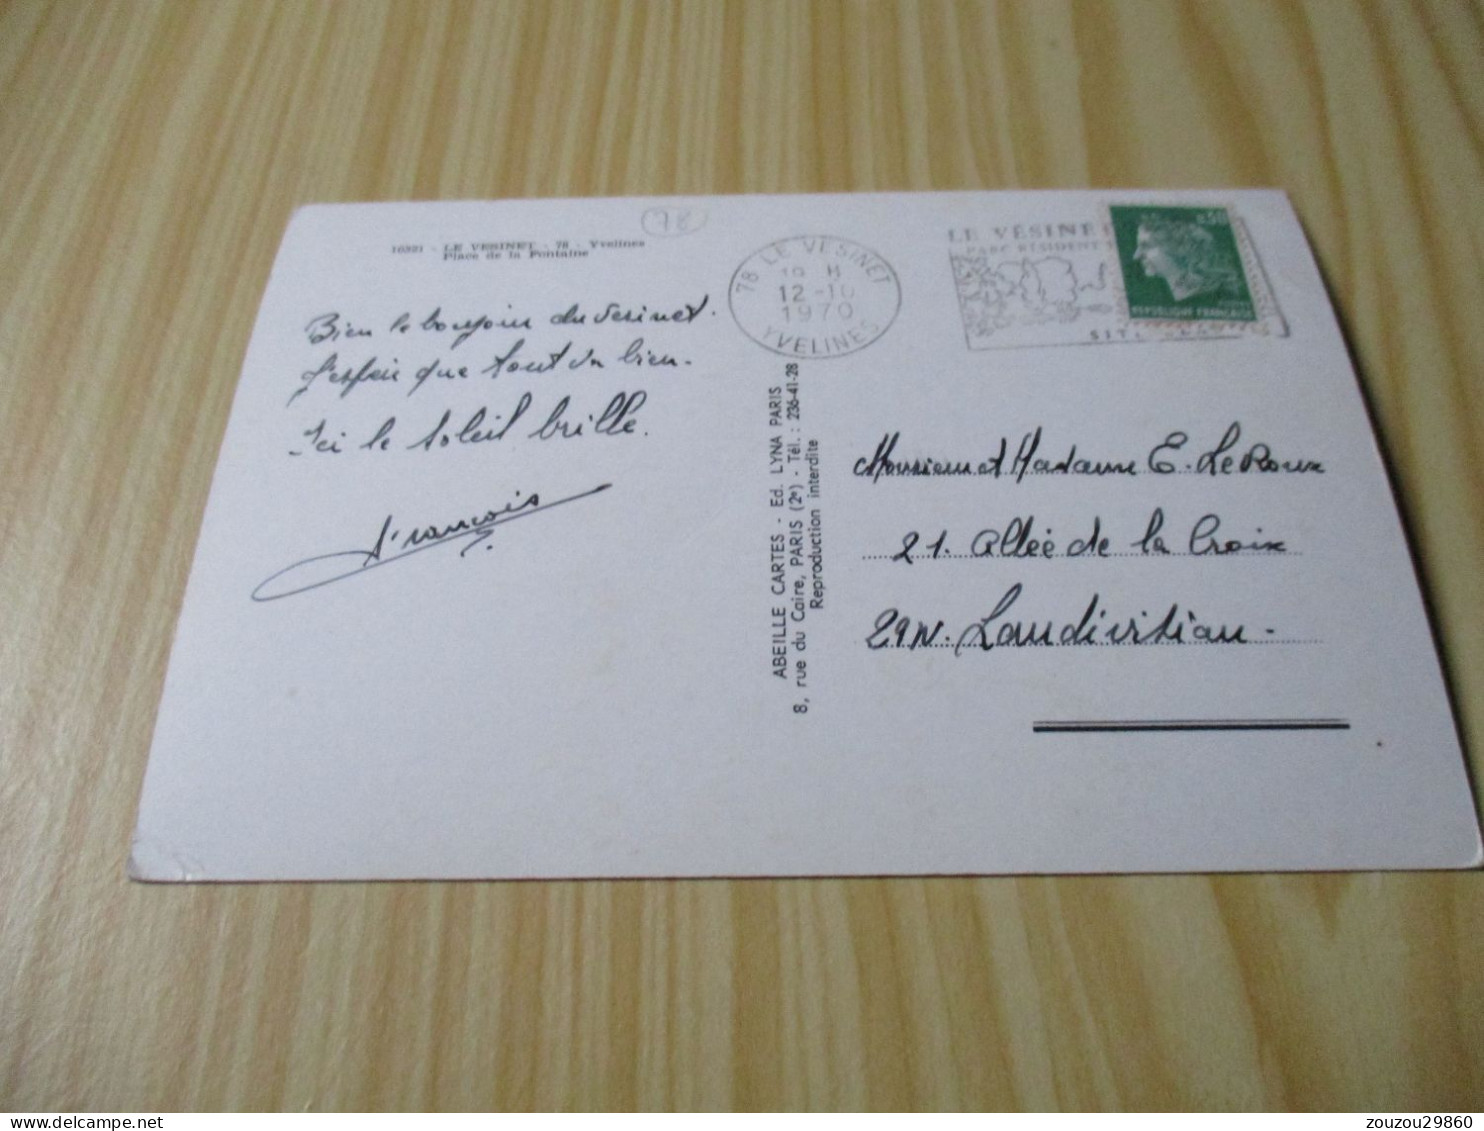 78
10321 - LE VESINET - 78 - Yvelines
Place de la Fontaine
Bien le bonjour du Vesinet.
J'espère que tout va bien.
Ici le soleil brille.
François
78 LE VESINET
12-10
1970
YVELINES
LE VÉSINE
PARC RÉSIDENT
SIT
0,50
REPUBLIQUE FRANÇAISE
ABEILLE CARTES - Ed. LYNA PARIS
8, rue du Caire, PARIS (2e) - Tél. : 236-41-28
Reproduction interdite
Monsieur et Madame E. Le Roux
21. Allée de la Croix
29N. Landivisiau.
zouzou29860